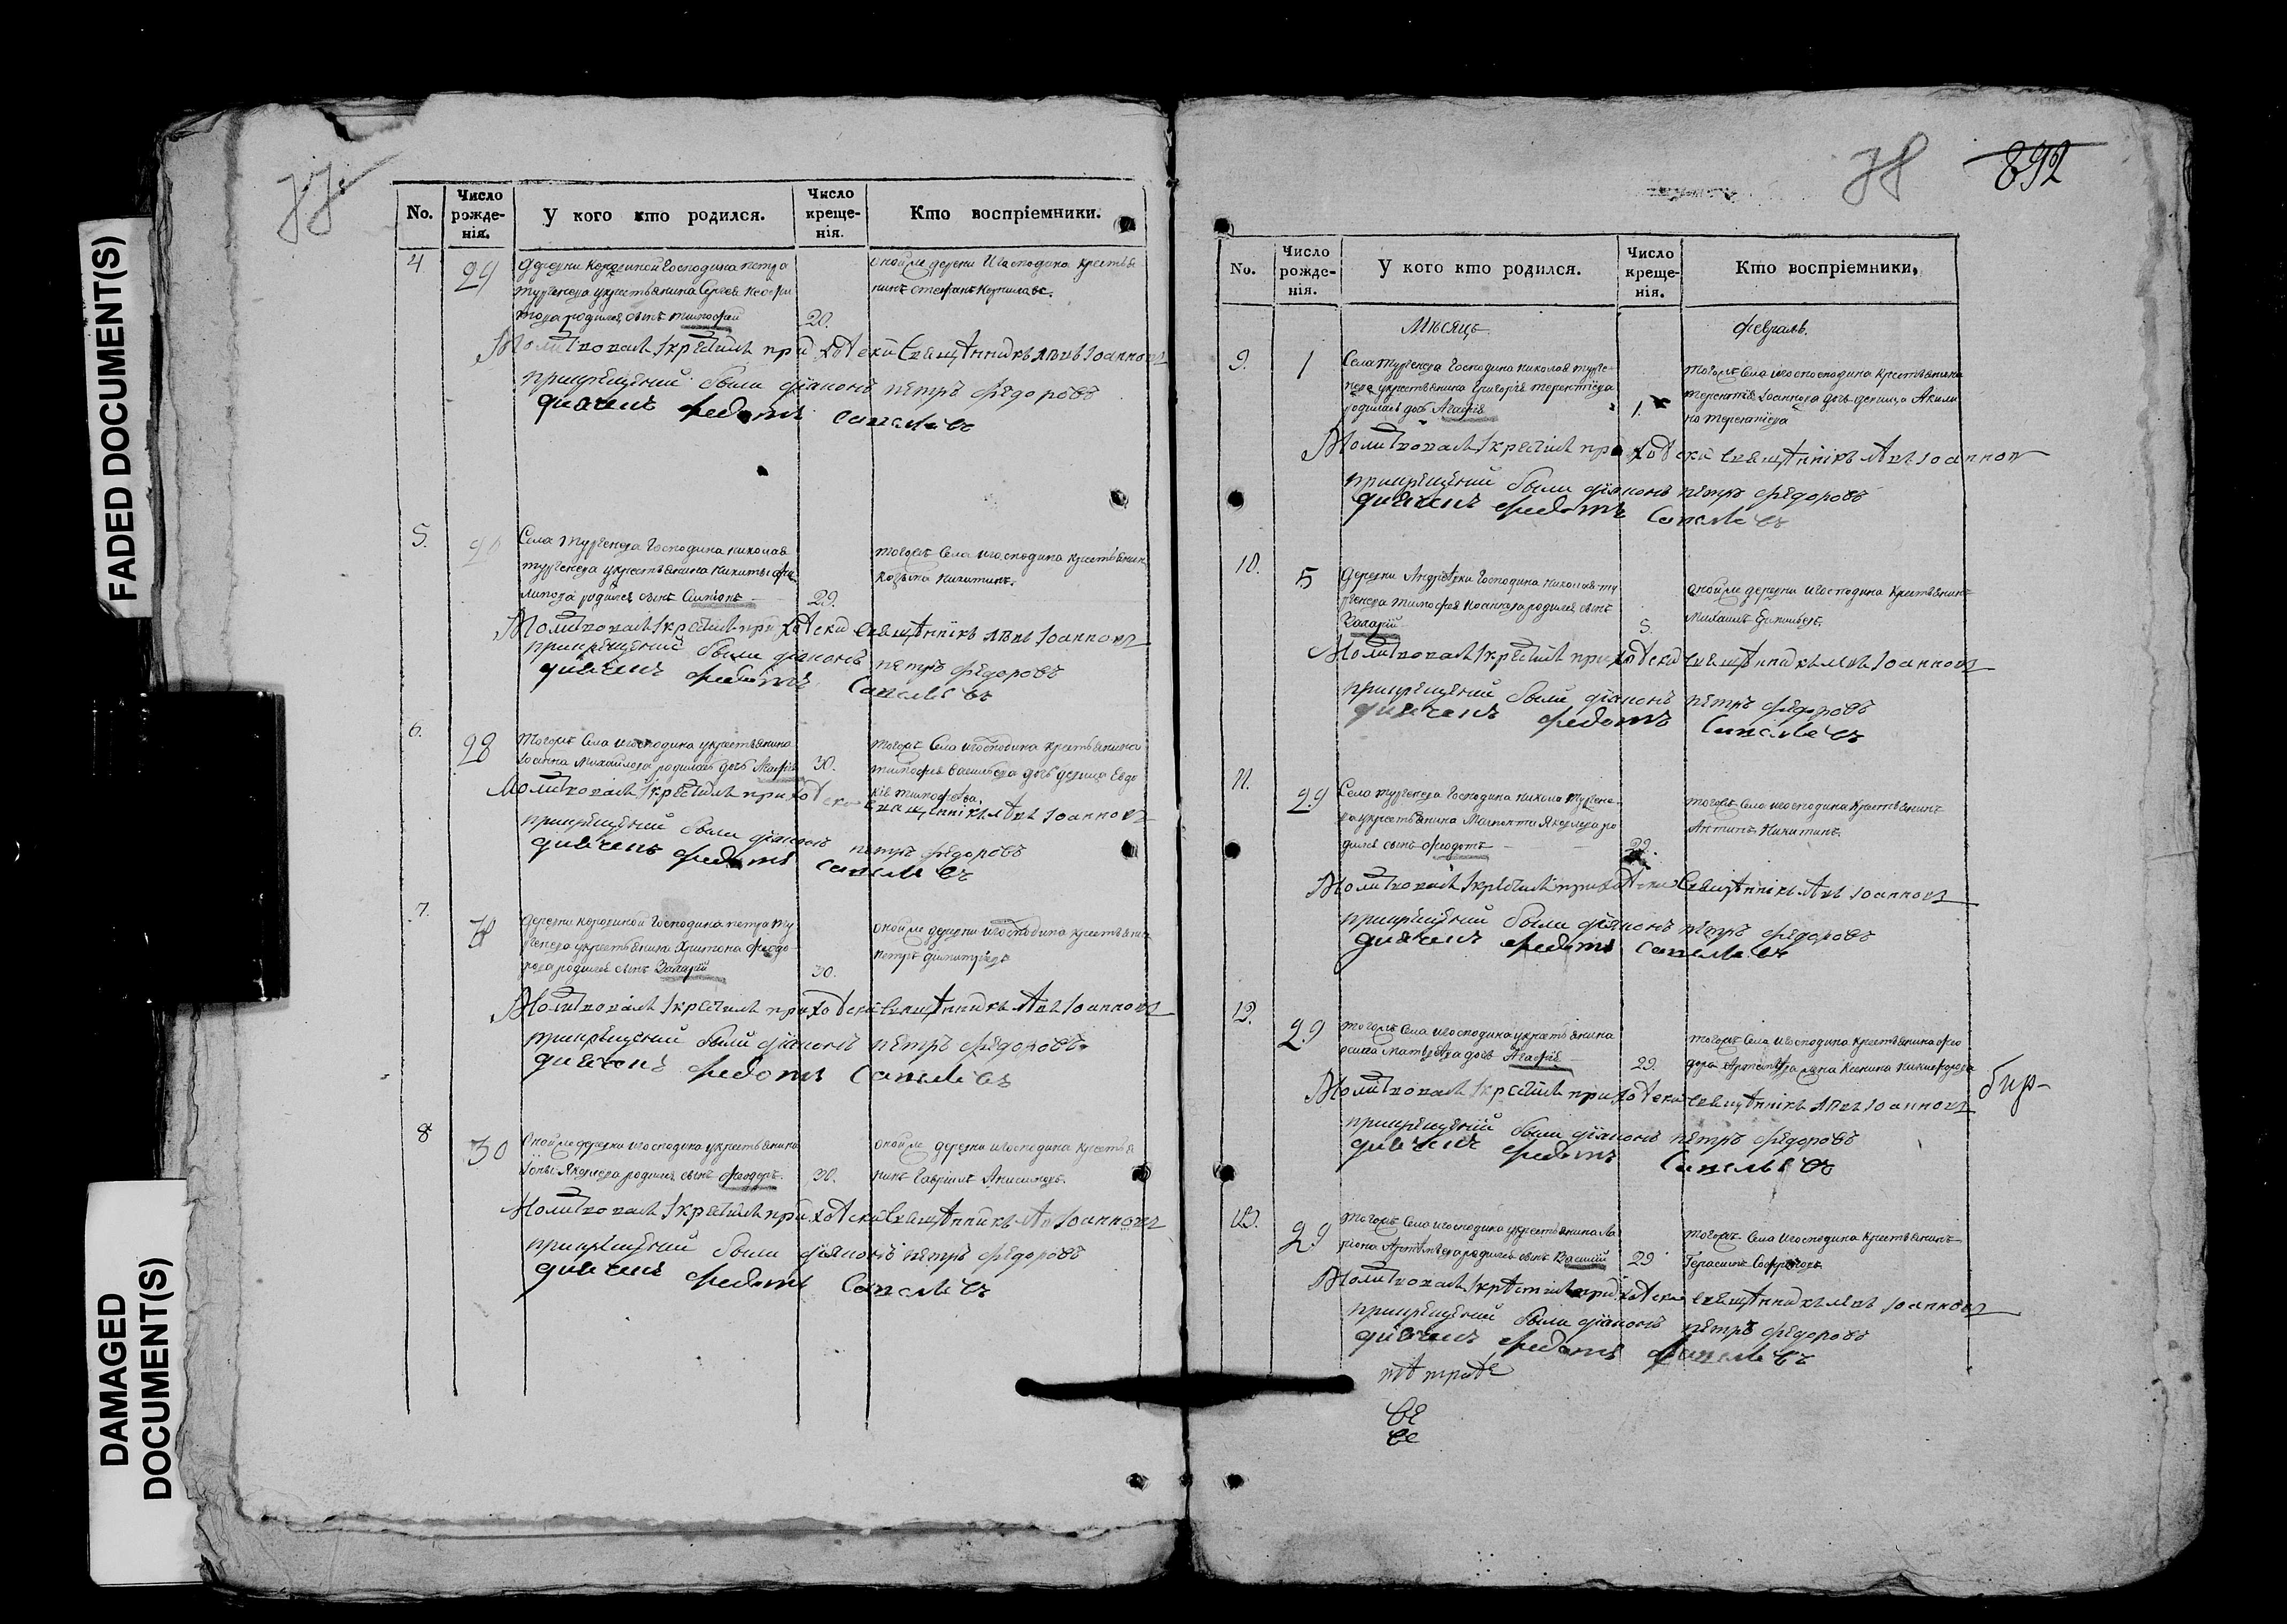 FADED DOCUMENT(S)
DAMAGED
DOCUMENT(S)
No.
Число
рожде-
нія.
У кого кто родился.
Число
креще-
нія.
Кто воспріемники.
4
24
деревни господина петра
тургенева укрестьянина Сергея
родился сынъ тимофей
20.
оной же деревни игосподина крестья
нинъ стефанъ
Молитвовалъ Iкрестилъ приходски Священникъ Iоанновъ
прикрещении были дiаконъ петръ Федоровъ
дьячекъ Федотъ Савельевъ
5.
Села тургенева Господина николая
тургенева укрестьянина никиты фи
липова родился сынъ Симеонъ
29.
тогожъ Села игосподина крестьянинъ
козьма никитинъ.
Молитвовалъ Iкрестилъ приходски священнiкъ Iоанновъ
прикрещении были дiаконъ петръ Федоровъ
дьячекъ Федотъ Савельевъ
6.
28
тогожъ Села игосподина укрестьянина
Iоанна Михайлова родилась дочь Агафiя
30.
тогожъ Села игосподина крестьянина
тимофея васильева дочь девица Евдо
кiя тимофеева.
Молитвовалъ Iкрестилъ приходски священнiкъ Iоанновъ
прикрещении были дiаконъ петръ Федоровъ
дьячекъ Федотъ Савельевъ
7.
деревни господина петра ту
ргенева укрестьянина Харитона Феодо
рова родился сынъ Захарiй
30.
оной же деревни игосподина крестьянинъ
петръ димитрiевъ
Молитвовалъ Iкрестилъ приходски священникъ Iоанновъ
прикрещении были дiаконъ петръ Федоровъ
дьячекъ Федотъ Савельевъ
8
30
Оной же деревни игосподина укрестьянина
Iоны Яковлева родился сынъ Феодоръ.
30.
оной же деревни игосподина крестья
нинъ Гаврiилъ Анисимовъ.
Молитвовалъ Iкрестилъ приходски Священникъ Iоанновъ
прикрещении были дiаконъ петръ Федоровъ
дьячекъ Федотъ Савельевъ
892
No.
Число
рожде-
нія.
У кого кто родился.
Число
креще-
нія.
Кто воспріемники,
Мѣсяцъ
февраль.
9.
1
Села тургенева Господина николая турге-
нева укрестьянина григорiя терентiева
родилась дочь Агафiя
1.
тогожъ Села игосподина крестьянина
терентiя Iоаннова дочь девица Акили
на терентiева
Молитвовалъ Iкрестилъ приходски священнiкъ Iоаннов
прикрещении были дiаконъ петръ Федоровъ
дьячекъ Федотъ Савельевъ
10.
5
деревни Андреевки Господина николая ту
ргенева тимофея родился сынъ
Захарiй
5.
оной же деревни игосподина крестьянинъ
михаилъ
Молитвовалъ Iкрестилъ приходски священникъ Iоанновъ
прикрещении были дiаконъ петръ Федоровъ
дьячекъ Федотъ Савельевъ
11.
29
Села тургенева Господина николая тургене
ва укрестьянина Яковлева ро
дился сынъ Феодотъ
29.
тогожъ Села игосподина крестьянинъ
Антипъ никитинъ.
Молитвовалъ Iкрестилъ приходски Священнiкъ Iоанновъ
прикрещении были дiаконъ петръ Федоровъ
дьячекъ Федотъ Савельевъ
12.
29
тогожъ Села игосподина укрестьянина
осипа матвеева дочь Агафiя
29.
тогожъ Села игосподина крестьянина Фео
дора жена Ксенiя никифорова
Молитвовалъ Iкрестилъ приходски священнiкъ Iоанновъ
прикрещении были дiаконъ петръ Федоровъ
дьячекъ Федотъ Савельевъ
13.
29
тогожъ Села игосподина укрестьянина Ла
рiона родился сынъ Василiй
29
тогожъ Села игосподина крестьянинъ
Герасимъ
Молитвовалъ Iкрестилъ приходски священникъ Iоанновъ
прикрещении были дiаконъ петръ Федоровъ
дьячекъ Федотъ Савельевъ